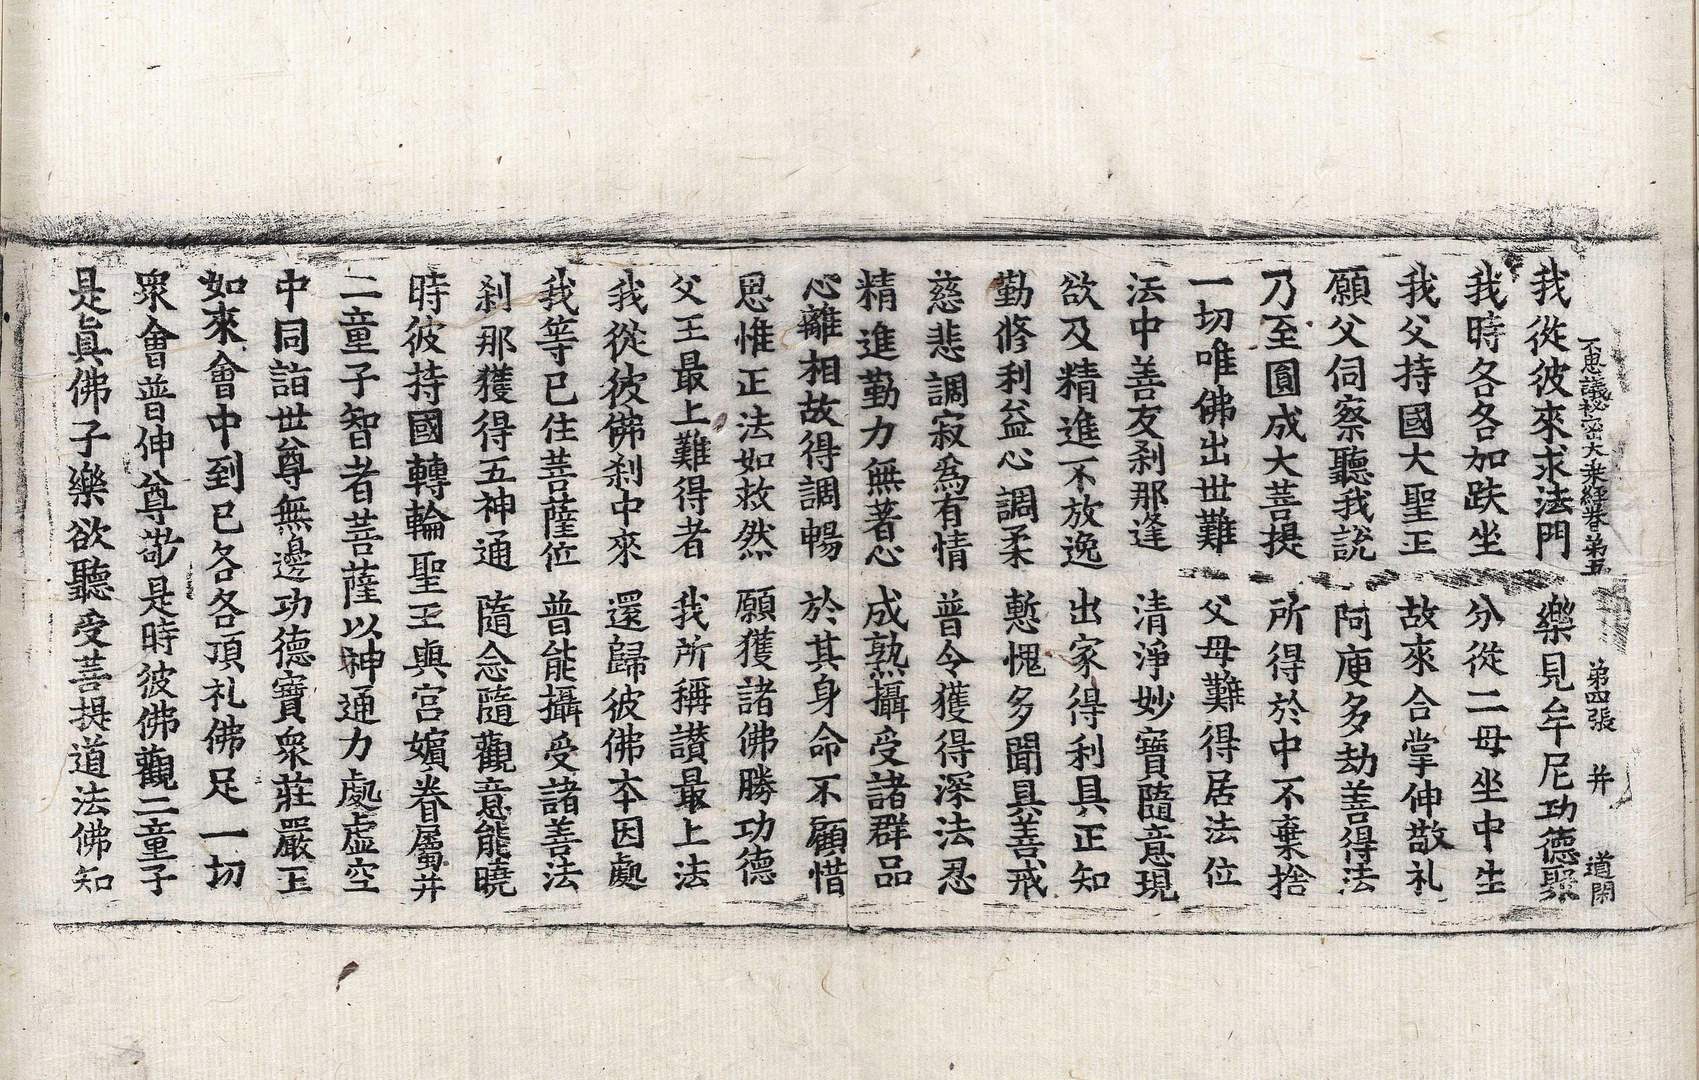 不思議秘密大乘經卷第五 第四張 井 道閑
我從彼來求法門 樂見牟尼功德聚
我時各各加趺坐 分從二母坐中生
我父持國大聖王 故來合掌伸敬礼
願父伺察聽我說 阿庾多劫善得法
乃至圓成大菩提 所得於中不棄捨
一切唯佛出世難 父母難得居法位
法中善友剎那逢 清淨妙寶隨意現
欲及精進不放逸 出家得利具正知
勤修利益心調柔 慙愧多聞具善戒
慈悲調寂為有情 普令獲得深法忍
精進勤力無著心 成熟攝受諸群品
心離相故得調暢 於其身命不顧惜
思惟正法如救然 願獲諸佛勝功德
父王最上難得者 我所稱讃最上法
我從彼佛剎中來 還歸彼佛本因處
我等已住菩薩位 普能攝受諸善法
剎那獲得五神通 隨念隨觀意能曉
時彼持國轉輪聖王與宮嬪眷屬并
二童子智者菩薩以神通力處虛空
中同詣世尊無邊功德寶衆莊嚴王
如來會中到已各各頂礼佛足一切
衆會普伸尊敬是時彼佛觀二童子
是眞佛子樂欲聽受菩提道法佛知